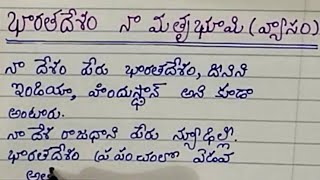 భారతదేశం నా మాతృభూమి (వ్యాసం)
నా దేశం పేరు భారతదేశం, దీనిని
ఇండియా, హిందుస్థాన్ అని కూడా
అంటారు.
నా దేశ రాజధాని పేరు న్యూఢిల్లీ.
భారతదేశం ప్రపంచంలో ఏడవ